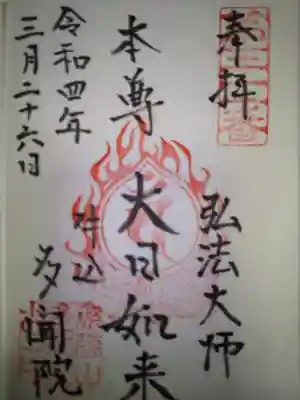 奉拝
弘法大師
本尊 大日如来
牛込 多聞院
令和四年
三月二十六日